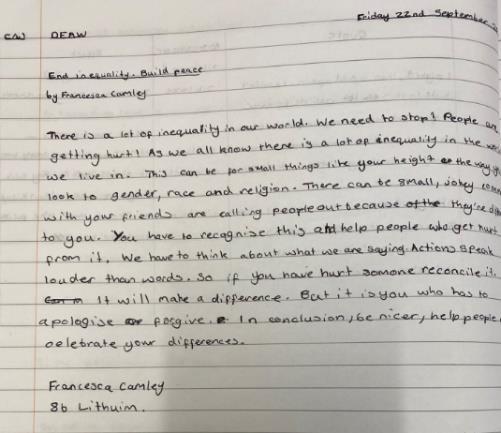 Friday 22nd September
C/W DEAW
End inequality. Build peace
by Francesca Camley
There is a lot of inequality in our world. We need to stop! People are
getting hurt! As we all know there is a lot of inequality in the
we live in. This can be for small things like your height or the way
look to gender, race and religion. There can be small, jokey
with your friends are calling people out because of the they're
to you. You have to recognise this and help people who get hurt
from it. We have to think about what we are saying. Actions speak
louder than words. So if you have hurt somone reconcile it.
It will make a difference. But it is you who has to
apologise or forgive. In conclusion, be nicer, help people
celebrate your differences.
Francesca Camley
8b Lithuim.